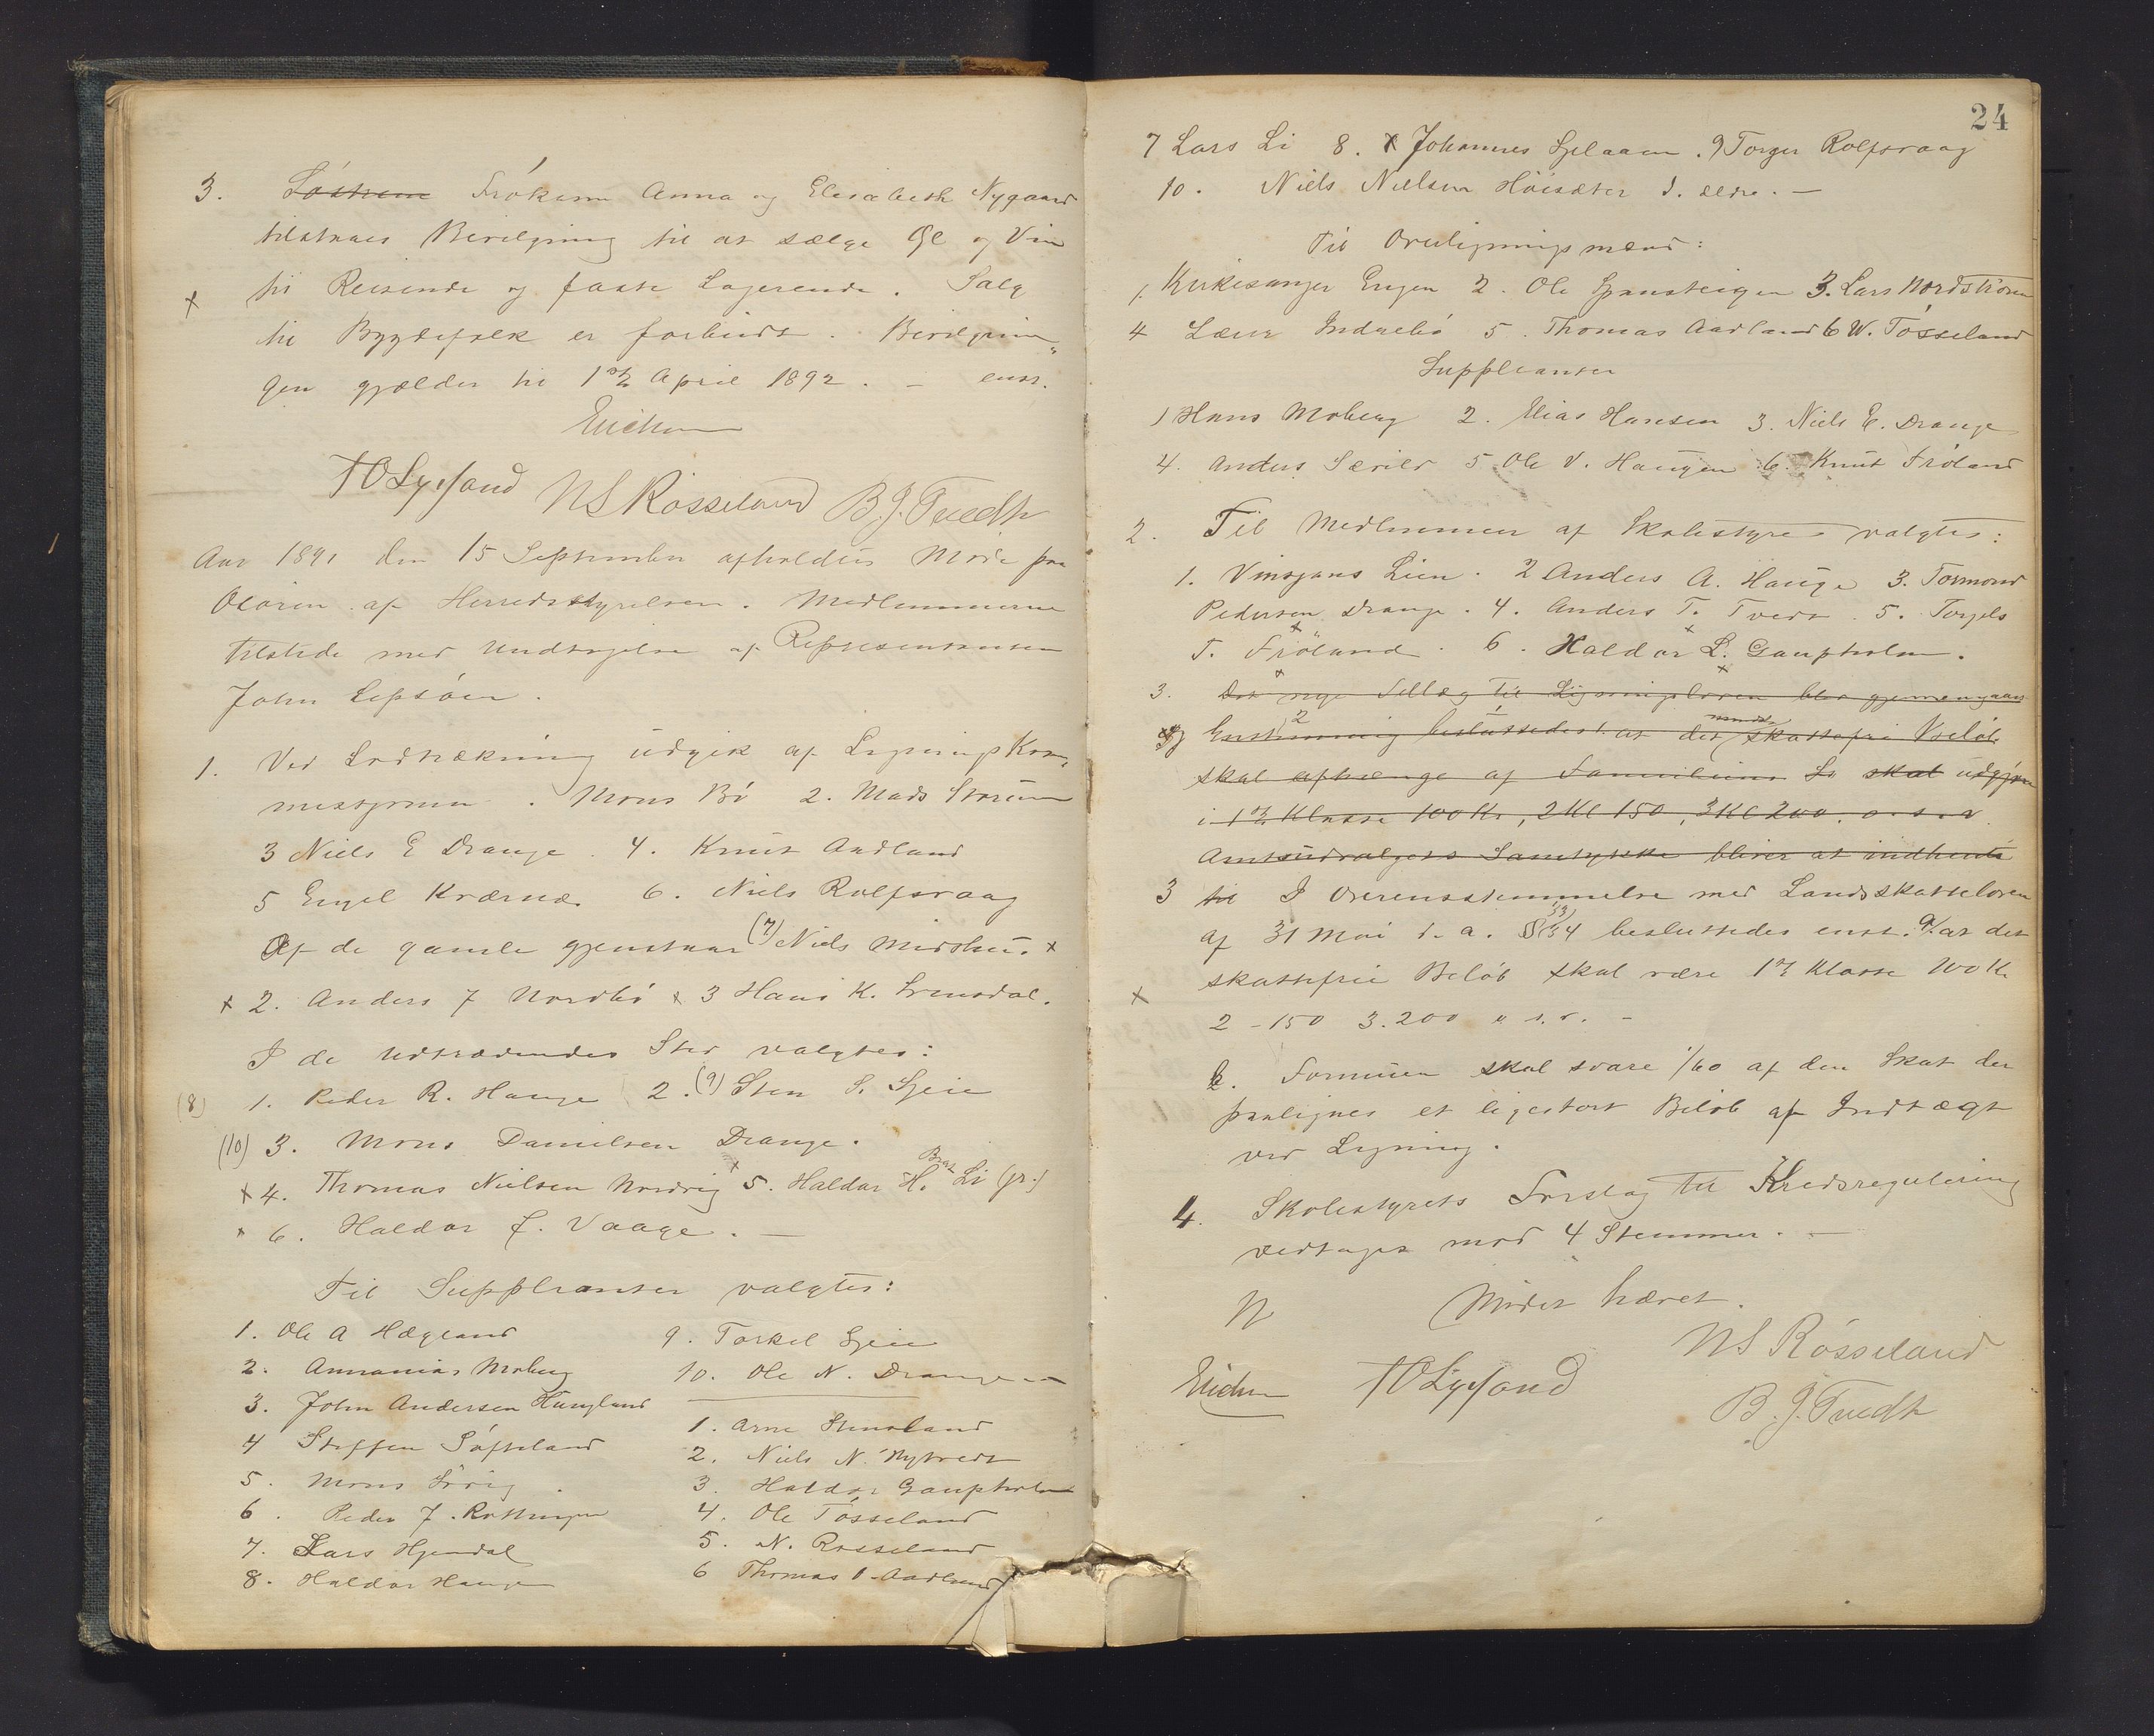 3. Söstrene Frökenerne Anna og Elisabeth Nygaard
tilstaaes Bevilgning til at sælge Øl og Vin
til Reisende og faste Logerende. Salg
til Bygdefolk er forbudt. Bevilgnin„
gen gjælder til 1ste April 1892. – enst.
Erichsen
T O Lysfand NS Røsseland B. J. Tvedt
Aar 1891 den 15 September afholdtes Möde paa
Osören af Herredsstyrelsen. Medlemmerne
tilstede med Undtagelse af Repræsentanten
John Lepsöen.
1. Ved Lodtrækning udgik af Ligningskom„
missionen. Mons Bö 2. Mads Storum
3 Niels E Drange. 4. Knut Aadland
5 Engel Kværnæ 6. Niels Rolfsvaag
Af de gamle gjenstaar (7) Niels Midthu. x
x 2. Anders J Nordbö x 3 Hans K. Irensdal.
I de Udtrædendes Sted valgtes:
(8) 1. Peder R. Hauge 2. (9) Sten S. Gjeie
(10) 3. Mons Danielsen Drange.
x 4. Thomas Nielsen Nordvig x 5. Haldor H. Brat Li (gr.)
x 6. Haldor J. Vaage. –
Til Suppleanter valgtes:
1. Ole A Hægland
2. Annanias Moberg
3. John Andersen Haugland
4 Steffen Söfteland
5. Mons Sörvig
6. Peder J. Rottingen
7. Lars Hjendal
8. Haldor Hauge
9. Torkel Gjeie
10. Ole N. Drange –
1. Arne Stensland
2. Niels N. Nytvedt
3. Haldor Gaupholm
4. Ole Tösseland
5. N. Rösseland
6 Thomas Aadland
24
7 Lars Li 8. x Johannes Gjelaaen. 9 Torger Rolfsvaag
10. Niels Nielsen Höisæter d. ældre. –
Til Overligningsmænd:
1. Kirkesanger Engen 2. Ole Spansteigen 3. Lars Nordström
4 Lærer Indrebö 5. Thomas Aadland 6 W. Tösseland
Suppleanter
1 Hans Moberg 2. Elias Hansen 3. Niels E. Drange
4. Anders Særvold 5 Ole V. Haugen 6. Knut Fröland
2. Til Medlemmer af Skolestyret valgtes:
1. Vinsjans Lien. 2 Anders A. Hauge 3. Tormod
Pedersen Drange. 4. Anders T. Tvedt. 5. Torgils
T. Fröland. 6. Haldor L. Gaupholm.
3. Det nye Tillæg til Ligningsloven blev gjennemgaaet
og Enstemmig besluttedes: at det mindste skattefri Beløb
skal afhænge af Familiens Lr skal udgjöre
i 1ste Klasse 100 Kr, 2 Kl 150, 3 Kl 200. o. s. v.
Amtsudvalgets Samtykke bliver at indhente
3 til I Overensstemmelse med Landsskatteloven
af 31 Mai d. a. §§ 33/34 besluttedes enst. a. at det
skattefrie Belöb skal være 1ste Klasse 100 Kr
2 – 150 3. 200 o. s. v. –
b. Formuen skal svare 1/60 af den Skat der
paalignes et ligestort Belöb af Indtægt
ved Ligning.
4. Skolestyrets Forslag til Kredsregulering
vedtages mod 4 Stemmer. –
N Mödet hævet.
Erichsen T O Lysfand NS Røsseland
B. J. Tvedt